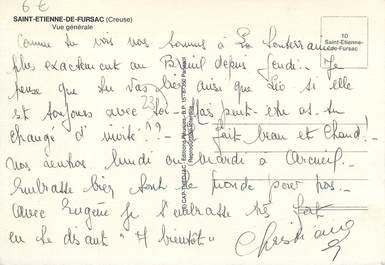 6 €
SAINT-ETIENNE-DE-FURSAC (Creuse)
Vue générale
10
Saint-Etienne-
de-Fursac
Comme tu vois nous sommes à La Souterraine
plus exactement au Breuil depuis Jeudi - Je
pense que tu vas bien ainsi que Léo si elle
est toujours avec toi - Mais peut-être as-tu
changé d'invité ?? - Il fait beau et chaud !
nous rentrons lundi ou mardi à Arcueil -
Embrasse bien tout le monde pour nous -
avec Eugène je t'embrasse très fort
en te disant "A bientôt"
Christiane